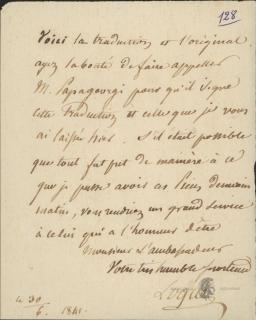 128
Voici la traduction et l'original
ayez la bonté de faire appeller
M. Papagourgi pour qu'il signe
cette traduction et celle que je vous
ai laissé hier. S'il était possible
que tout fut fet de manière à ce
que je pusse avoir ces pièces demain
matin, vous rendriez un grand service
à celui qui a l'honneur d'être
Monsieur l'ambassadeur
Votre très humble
le 30
6. 1841.